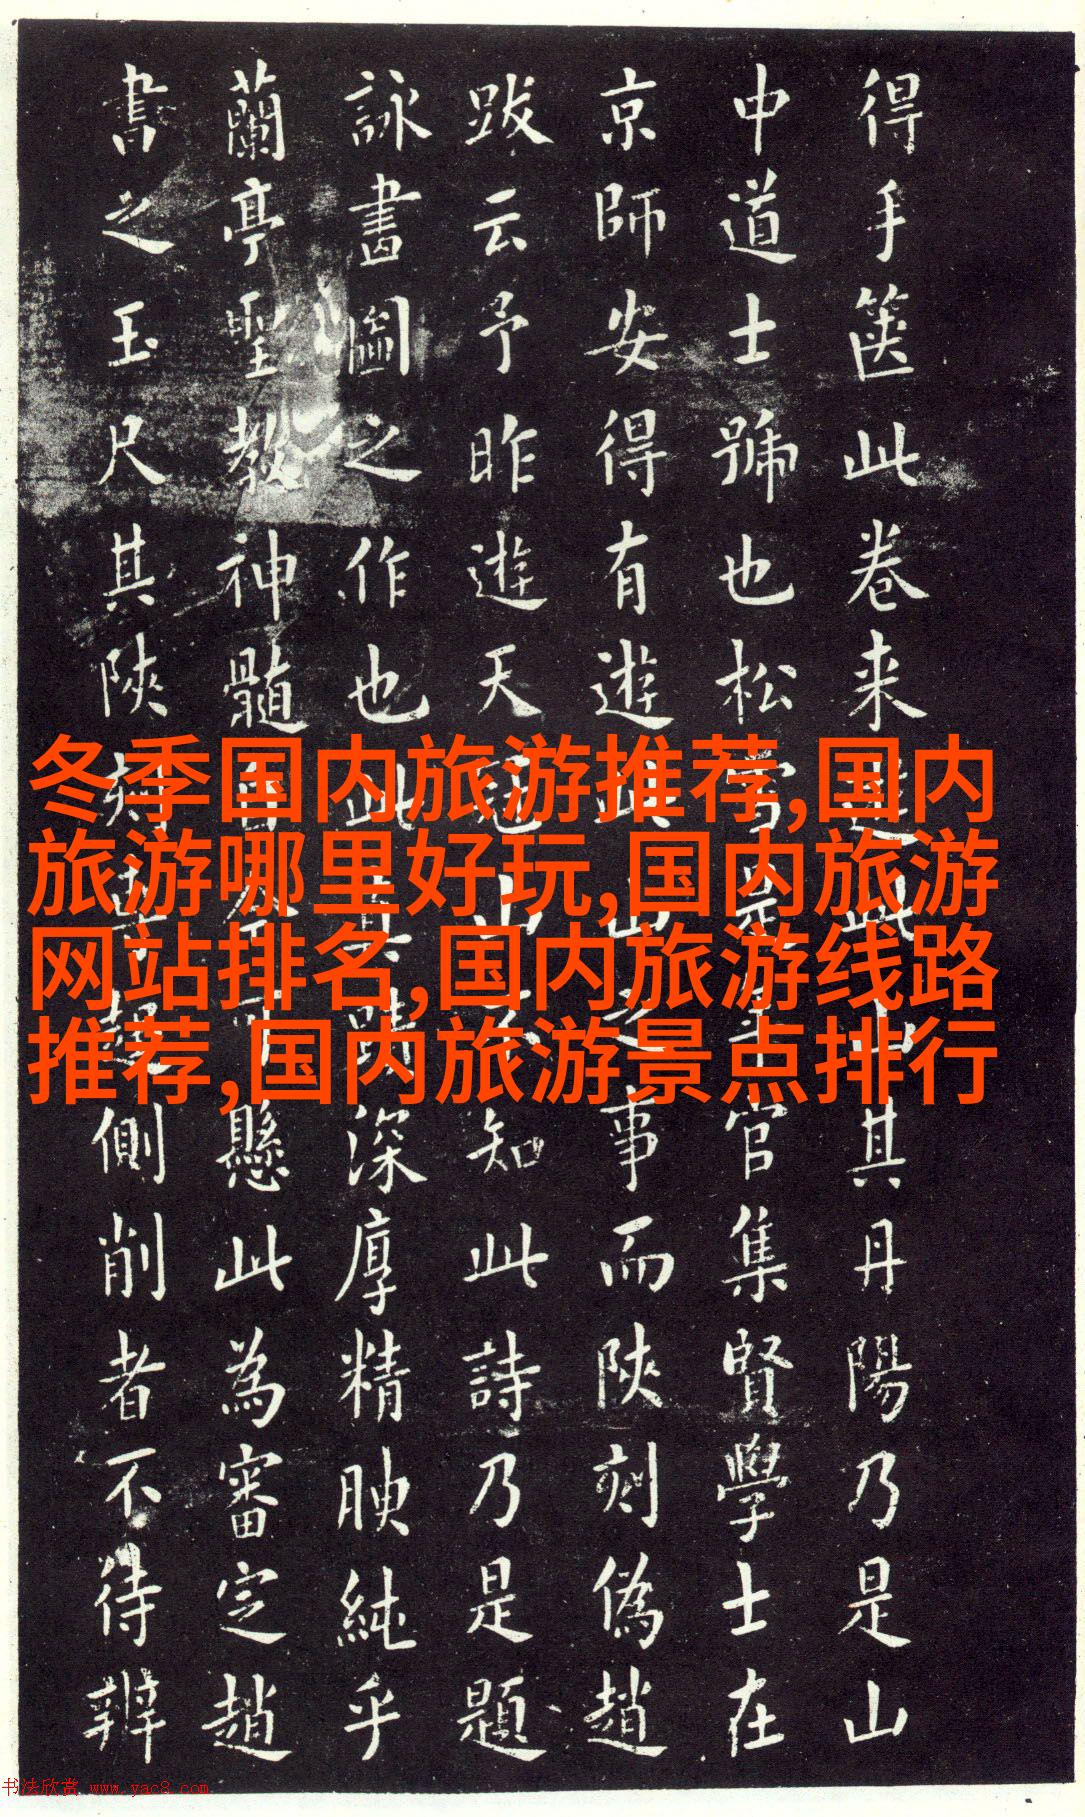 得手篋此卷来遊此山其丹陽乃是山
中道士號也松雪是官集賢學士在
京師安得有遊此山之事而陝刻偽趙
跋云予昨遊天冠山知此詩乃是題
詠畫圖之作也此其深厚精腴純乎
蘭亭聖教神髓懸此為審定趙
書之玉尺其陝刻側削者不待辨
冬季国内旅游推荐,国内
旅游哪里好玩,国内旅游
网站排名,国内旅游线路
推荐,国内旅游景点排行
书法欣赏 www.yac8.com